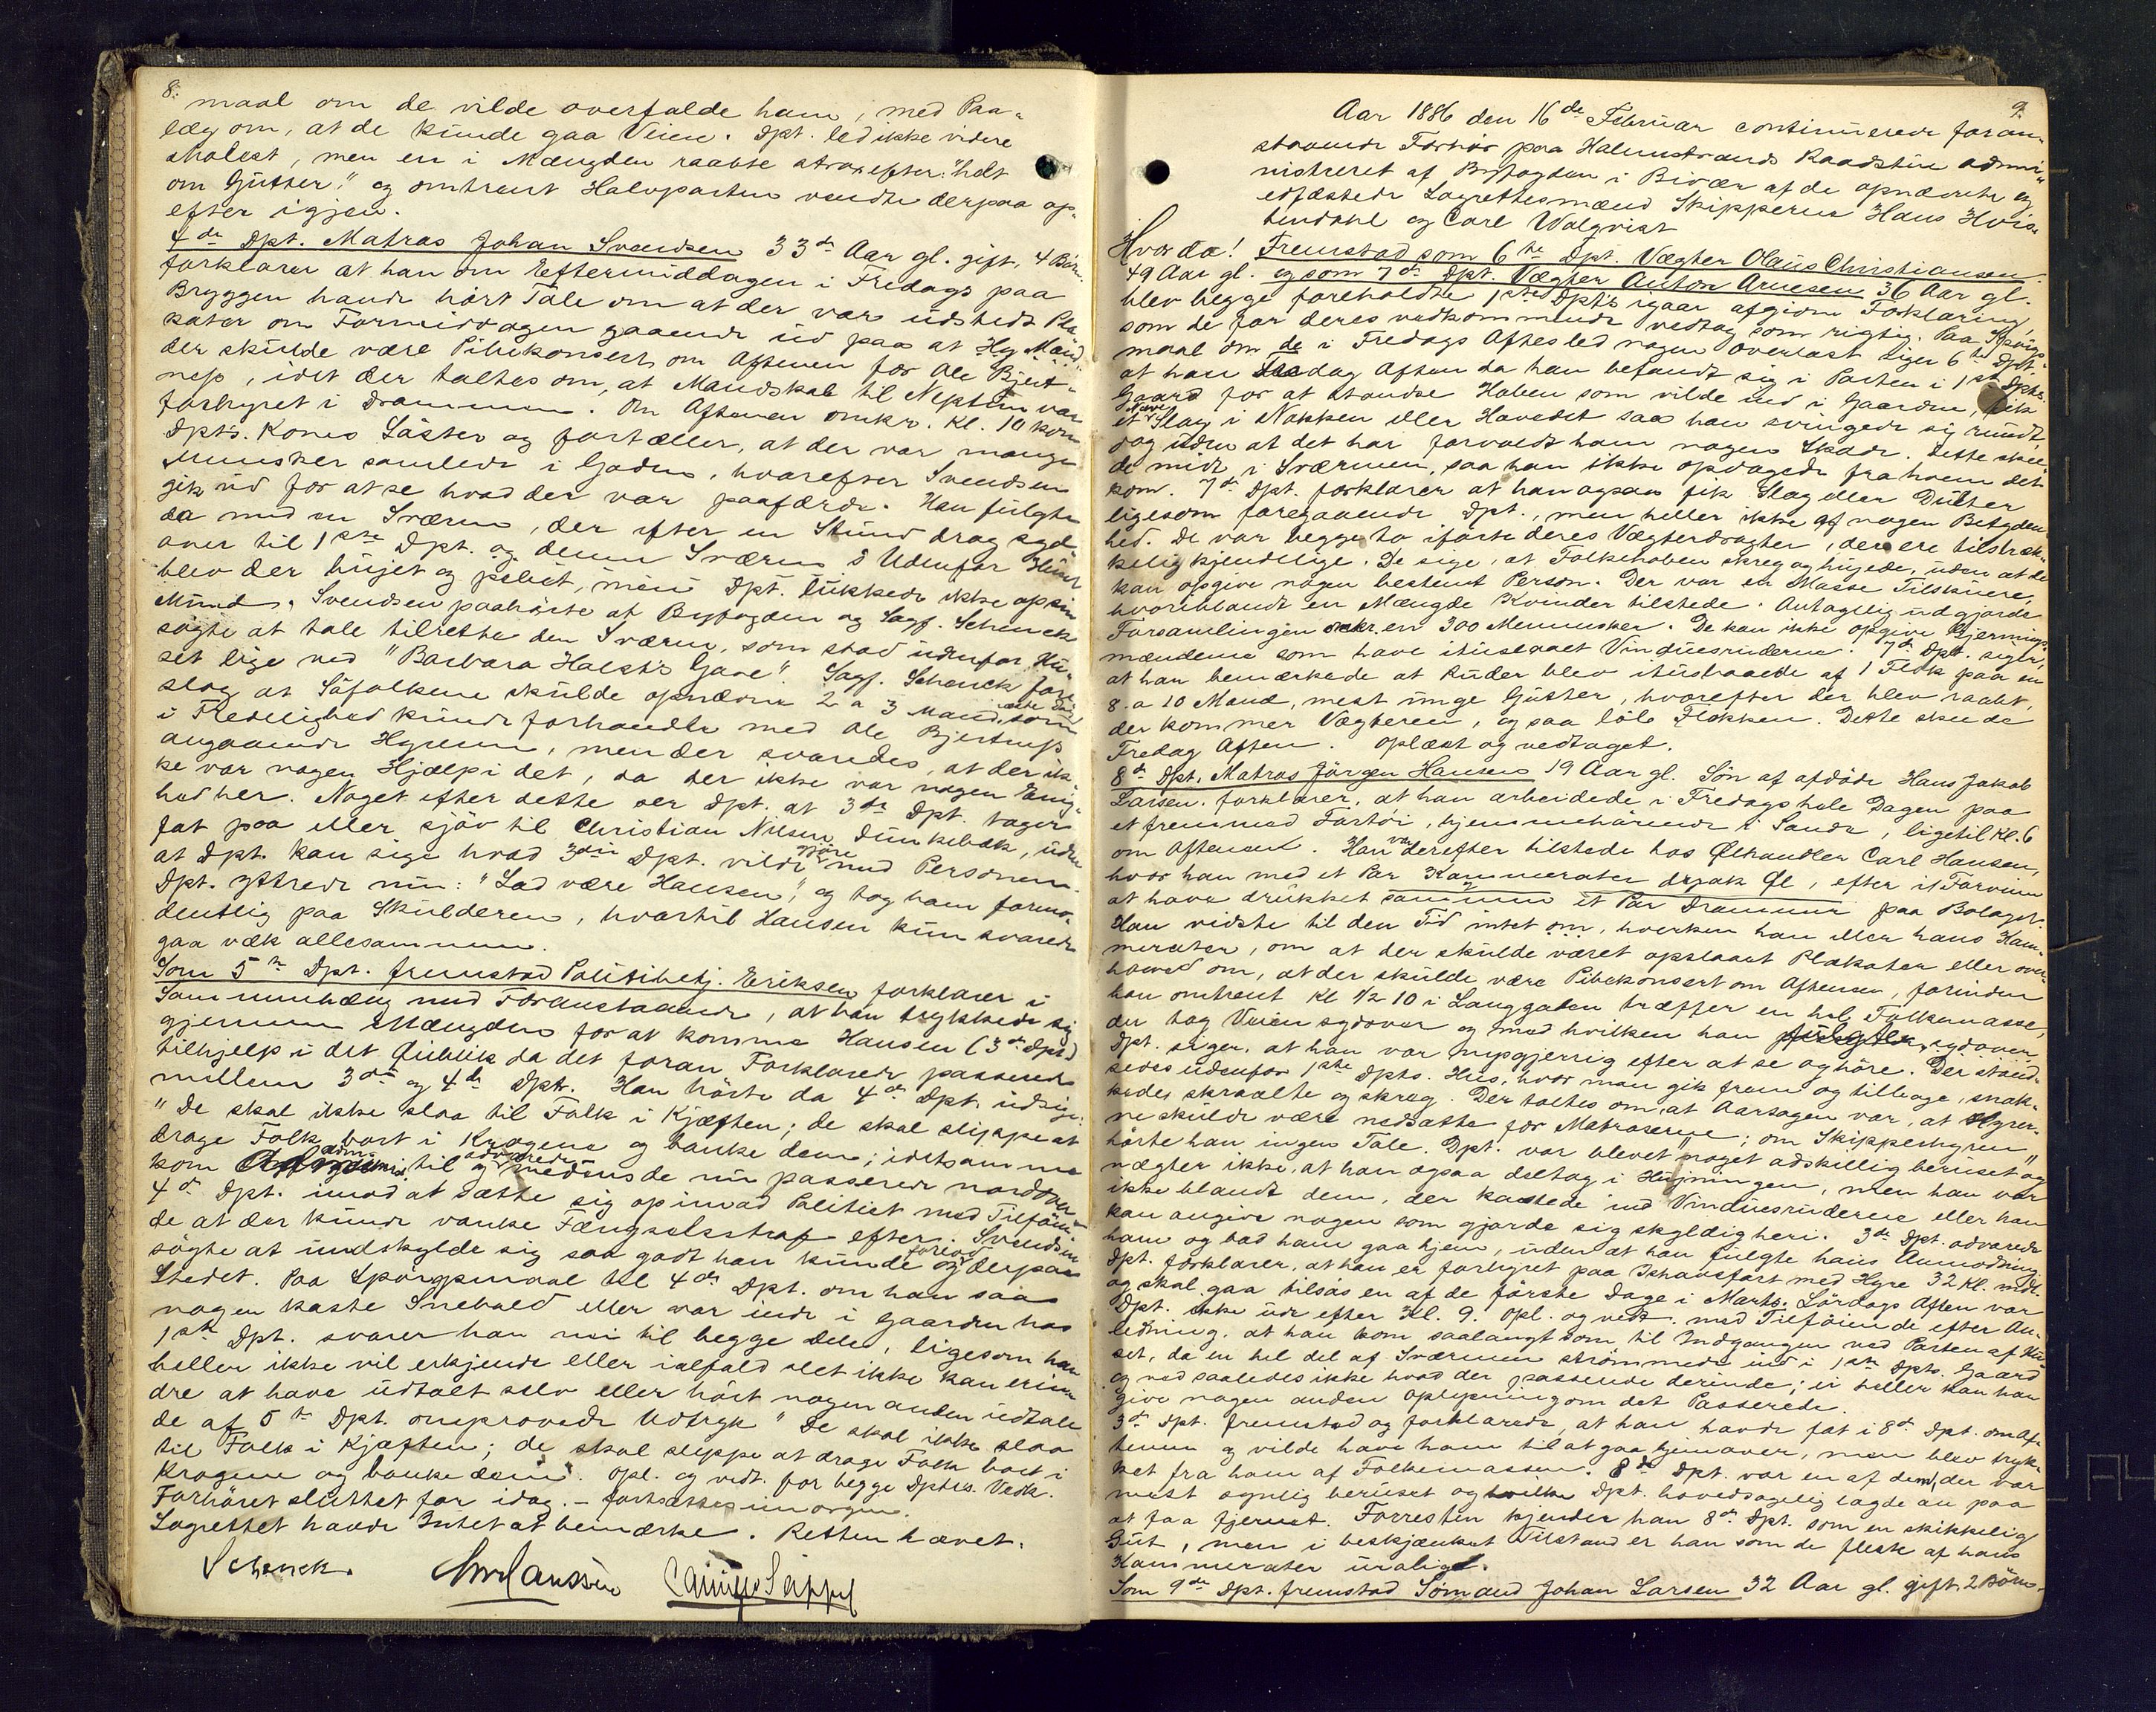 8.
maal om de vilde overfalde ham, med Paa-
læg om, at de kunde gaa Veien. Dpt. led ikke videre
Molest, men en i Mængden raabte strax efter: "holt
om Gutter!" og omtrent Halvparten vendte derpaa op-
efter igjen.
4de Dpt. Matros Johan Svendsen 33de Aar gl. gift, 4 Börn
forklarer at han om Eftermiddagen i Fredags paa
Bryggen havde hört Tale om at der var udstedt Pla-
kater om Formiddagen gaaende ud paa at
der skulde være Pibekonsert om Aftenen for Ole Bjert-
næs, idet der taltes om, at Mandskab til Neptun var
forhyret i Drammen. Om Aftenen omkr. Kl. 10 kom
Dpts. Kones Söster og fortæller, at der var mange
Mennesker samlede i Gaden, hvorefter Svendsen
gik ud for at se hvad der var paafærde. Han fulgte
da med en Sværm, der efter en Stund drog syd-
over til 1ste Dpt. og denne Sværm. Udenfor Huset
blev der hujet og pebet, men Dpt. lukkede ikke op sin
Mund. Svendsen paahörte at Byfogden og Sagf. Schenck
sögte at tale tilrette den Sværm, som stod udenfor Hu-
set lige ved "Barbara Halsts Gave". Sagf. Schenck fore-
slog at Söfolkene skulde opnævne 2 a 3 Mand, som
i Fredelighed kunde forhandle med Ole Bjertnæs
angaaende Hyren, men der svaredes, at der ik-
ke var nogen Hjælp i det, da der ikke var nogen Enig-
hed her. Noget efter dette ser Dpt. at 3de Dpt. tager
fat paa eller sjöv til Christian Nilsen Dunkebæk, uden
at Dpt. kan sige hvad 3die Dpt. vilde gjöre med Personen.
Dpt. yttrede nu: "Lad være Hansen", og tog ham formo-
dentlig paa Skulderen, hvortil Hansen kun svarede
gaa væk allesammen.
Som 5te Dpt. fremstod Politibetj. Eriksen forklarer i
Sammenhæng med Foranstaaende, at han trykkede sig
gjennem Mængden for at komme Hansen (3de Dpt.)
tilhjelp i det Öieblik da det foran Forklarede passerede
mellem 3de og 4de Dpt. Han hörte da 4de Dpt. udsige:
"De skal ikke slaa til Folk i Kjæften; de skal slippe at
drage Folk bort i Kragene og banke dem; idetsamme
kom til og advarede medens de nu passerede nordover
4de Dpt. imod at sætte sig op imod Politiet med Tilföien-
de at der kunde vanke Fængselsstraf efter. Svendsen
sögte at undskylde sig saa godt han kunde og forlod derpaa
Stedet. Paa Spörgsmaal til 4de Dpt. om han saa
nogen kaste Snebold eller var inde i Gaarden hos
1ste Dpt. svarer han nei til begge Dele, ligesom han
heller ikke vil erkjende eller ialfald slet ikke kan erin-
dre at have udtalt selv eller hört nogen anden udtale
de af 5te Dpt. omprovede Udtryk "De skal ikke slaa
til Folk i Kjæften; de skal slippe at drage Folk bort i
Kragene og banke dem. Opl. og vedt. for begge Dptes. Vedk.
Forhöret sluttet for idag. – fortsættes imorgen.
Lagrettet havde Intet at bemærke. Retten hævet.
Schenck.
9.
Aar 1886 den 16de Februar continuerede foran-
staaende Forhör paa Holmestrands Raadstue admi-
nistreret af Byfogden i Bivær af de opnævnte og
edfæstede Lagrettesmænd Skipperne Hans Hvis-
tendahl og Carl Walqvist
Hvorda! Fremstod som 6te Dpt. Vægter Olaus Christiansen
49 Aar gl. og som 7de Dpt. Vægter Anton Arnesen 36 Aar gl.
blev begge foreholdte 1ste Dpts igaar afgivne Forklaring,
som de for deres vedkommende vedtog som rigtig. Paa Spörgs-
maal om de i Fredags Aftes led nogen Overlast siger 6te Dpt.
at han Fredag Aften da han befandt sig i Porten i 1ste Dpts.
Gaard for at standse Hoben som vilde ind i Gaarden, fik
et Slag i Nakken eller Hovedet saa han svingede sig rundt
dog uden at det har forvoldt ham nogen Skade. Dette skee-
de midt i Sværmen, saa han ikke opdagede fra hvem det
kom. 7de Dpt. forklarer at han ogsaa fik Slag eller Dulter
ligesom foregaaende Dpt., men heller ikke af nogen Betyden-
hed. De var begge to iförte deres Vægterdragter, der ere tilstræk-
kelig kjendelige. De sige, at Folkehoben skreg og hujede, uden at de
kan opgive nogen bestemt Person. Der var en Masse Tilskuere,
hvoriblandt en Mængde Kvinder tilstede. Antagelig udgjorde
Forsamlingen omkr. en 300 Mennesker. De kan ikke opgive Gjernings-
mændene som have ituslaaet Vinduesruderne. 7de Dpt. siger,
at han bemærkede at Ruder blev ituslaaede af 1 Flok paa en
8 a 10 Mand, mest unge Gutter, hvorefter der blev raabt,
der kommer Vægteren, og saa löb Flokken. Dette skede
Fredag Aften. Oplæst og vedtaget.
8de Dpt. Matros Jörgen Hansen 19 Aar gl. Sön af afdöde Hans Jakob
Larsen, forklarer, at han arbeidede i Fredags hele Dagen paa
et fremmed Fartöi, hjemmehörende i Sande, ligetil Kl. 6
om Aftenen. Han var derefter tilstede hos Ölhandler Carl Hansen,
hvor han med et Par Kammerater drak Öl, efter i Forveien
at have drukket sammen et Par Drammer paa Bolaget.
Han vidste til den Tid intet om, hverken han eller hans Kam-
merater, om at der skulde været opslaaet Plakater eller over-
hoved om, at der skulde være Pibekonsert om Aftenen, forinden
han omtrent Kl 1/2 10 i Langgaden træffer en hel Folkemasse,
der tog Veien sydover og med hvilken han fulgte sydover.
Dpt. siger, at han var nysgjerrig efter at se og höre. Der stand-
sedes udenfor 1ste Dpts. Hus, hvor man gik frem og tilbage, snak-
kede, skraalte og skreg. Der taltes om, at Aarsagen var, at Hyrer-
ne skulde være nedsatte for Matroserne; om Skipperhyren
hörte han ingen Tale. Dpt. var blevet "noget adskillig beruset" og
nægter ikke, at han ogsaa deltog i Hujningen, men han var
ikke blandt dem, der kastede ind Vinduesruderne eller han
kan angive nogen som gjorde sig skyldig heri. 3de Dpt. advarede
ham og bad ham gaa hjem, uden at han fulgte hans Anmodning.
Dpt. forklarer, at han er forhyret paa Ishavsfart med Hyre 32 Kl. mdl.
og skal gaa tilsös en af de förste Dage i Marts. Lördags Aften var
Dpt. ikke ude efter Kl. 9. Opl. og vedt. med Tilföiende efter An-
ledning, at han kom saalangt som til Indgangen ved Porten af Hu-
set, da en hel del af Sværmen strömmede ud i 1ste Dpts. Gaard
og ved saaledes ikke hvad der passerede derinde; ei heller kan han
give nogen anden oplysning om det Passerede.
3de Dpt. fremstod og forklarede, at han havde fat i 8de Dpt. om Af-
tenen og vilde have ham til at gaa hjemover, men blev tryk-
ket fra ham af Folkemassen. 8de Dpt. var en af dem, der var
mest synlig beruset og hvilke Dpt. hovedsagelig lagde an paa
at faa fjernet. Forresten kjender han 8de Dpt. som en skikkelig
Gut, men i beskjænket Tilstand er han som de fleste af hans
Kammerater urolig.
Som 9de Dpt. fremstod Sömand Johan Larsen 32 Aar gl. gift, 2 Börn.